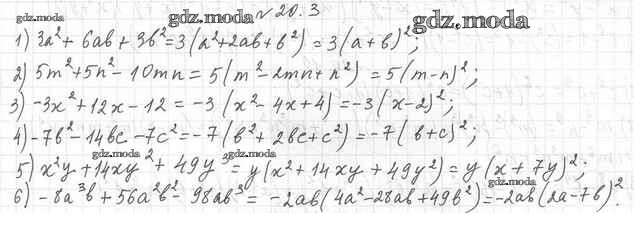 gdz.moda
gdz.moda
№20.3
gdz.moda
1) 3a²+ 6ab + 3b²=3(a²+2ab+b²) = 3(a+b)²;
2) 5m²+5n²- 10mn = 5(m²-2mn+n²) = 5(m-n)²;
3) -3x²+12x-12 = -3(x²-4x+4) = -3(x-2)²;
4) -7b²-14bc-7c²=-7(b²+2bc+c²) = -7(b+c)²;
gdz.moda
gdz.moda
5) x²y+14xy²+49y³=y(x²+14xy+49y²) = y(x+7y)²;
gdz.moda
6) -8a³b+56a²b²-98ab³= -2ab(4a²-28ab+49b²)=-2ab(2a-7b)².